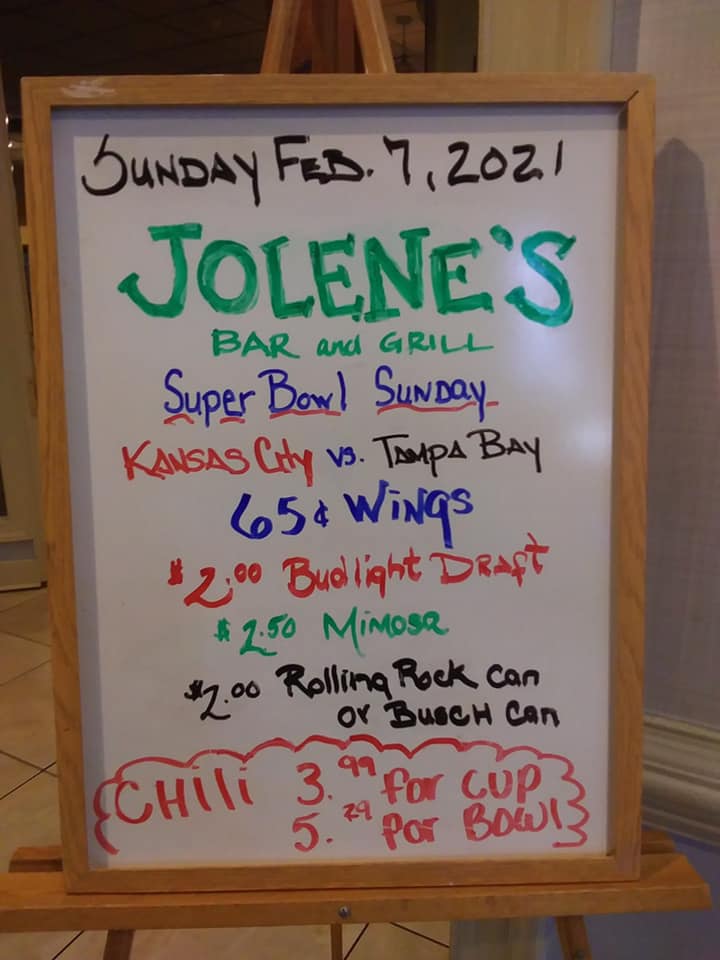 SUNDAY FEB. 7, 2021
JOLENE'S
BAR and GRILL
Super Bowl Sunday
KANSAS City vs. TAMPA BAY
65¢ WINGS
$2.00 Budlight DRAft
$2.50 MiMOSA
$2.00 Rolling Rock can
or BUSCH Can
CHili 3.99 for CUP
5.29 for BOWl